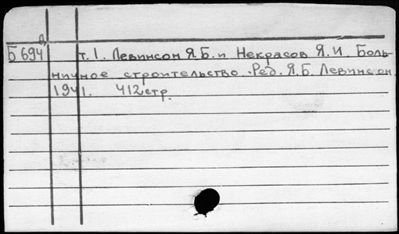 Б 694
т. 1. Левинсон Я.Б. и Некрасов Я.И. Боль-
ничное строительство. Ред. Я.Б. Левинсон.
1941. 412стр.